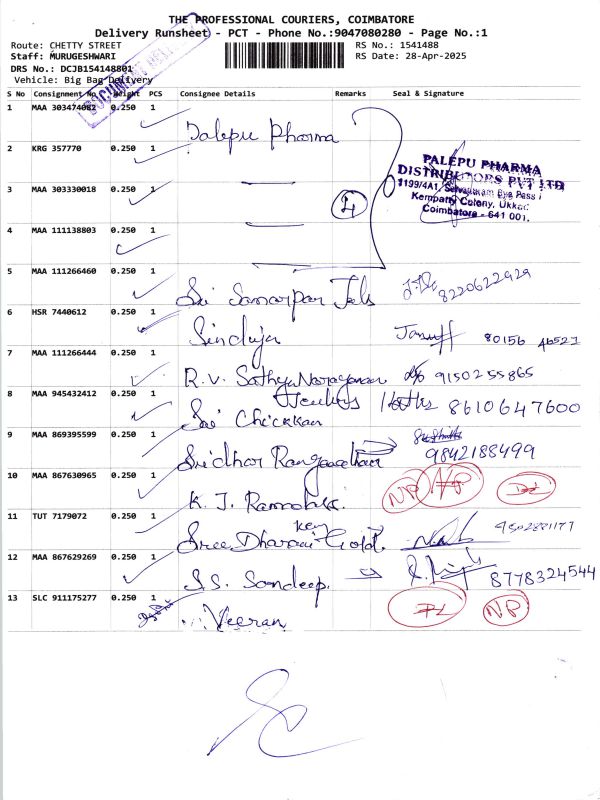 THE PROFESSIONAL COURIERS, COIMBATORE
Delivery Runsheet - PCT - Phone No.:9047080280 - Page No.:1
Route: CHETTY STREET
RS No.: 1541488
Staff: MURUGESHWARI
RS Date: 28-Apr-2025
DRS No.: DCJB154148801
Vehicle: Big Bag Delivery
S No Consignment No Weight PCS Consignee Details Remarks Seal & Signature
1 MAA 303474082 0.250 1 Palepu Pharma
2 KRG 357770 0.250 1
PALEPU PHARMA
DISTRIBUTORS PVT LTD
1199/4A1, Bye Pass
Kempatty Colony, Ukkad
Coimbatore - 641 001.
3 MAA 303330018 0.250 1
4
4 MAA 111138803 0.250 1
5 MAA 111266460 0.250 1 Sri Samarpan Jels 8220622929
6 HSR 7440612 0.250 1 Sinduja 80156 46521
7 MAA 111266444 0.250 1 R.V. Sathya Narayanan 9150255865
8 MAA 945432412 0.250 1 Sri Chickkan 8610647600
9 MAA 869395599 0.250 1 Sridhar Ranganathan 9842188499
10 MAA 867630965 0.250 1 K. J. NP NP
11 TUT 7179072 0.250 1 Sree Dharani Gold
12 MAA 867629269 0.250 1 S.S. Sandeep. 8778324544
13 SLC 911175277 0.250 1 Veeran NP